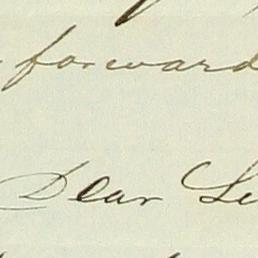 forward
Dear